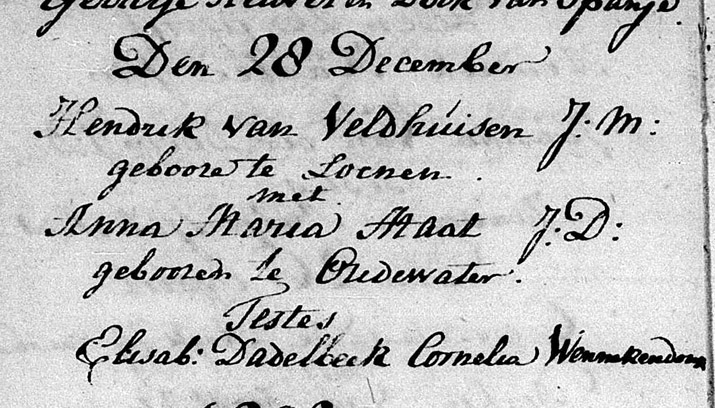 van Spanje.
Den 28 December
Hendrik van Veldhúisen J: M:
geboore te Loenen.
met
Anna Maria Maat J: D:
gebooren te Oudewater.
Testes
Elisab: Dadelbeek Cornelia